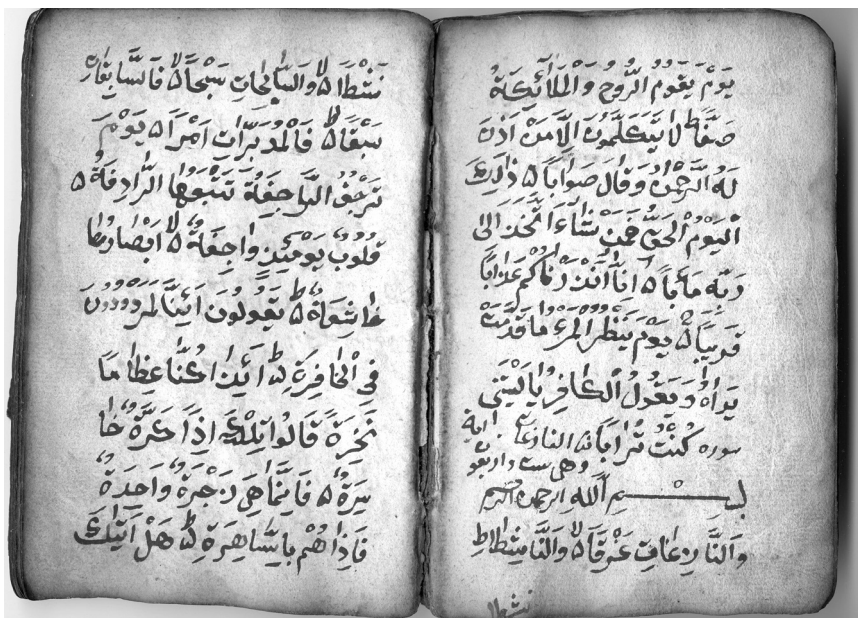 يَوْمَ يَقُومُ الرُّوحُ وَالْمَلَائِكَةُ
صَفًّا لَا يَتَكَلَّمُونَ اِلَّا مَنْ اَذِنَ
لَهُ الرَّحْمٰنُ وَقَالَ صَوَابًا ۵ ذٰلِكَ
الْيَوْمُ الْحَقُّ فَمَنْ شَاءَ اتَّخَذَ اِلٰى
رَبِّهِ مَاٰبًا ۵ اِنَّا اَنْذَرْنَاكُمْ عَذَابًا
قَرِيبًا ۵ يَوْمَ يَنْظُرُ الْمَرْءُ مَا قَدَّمَتْ
يَدَاهُ وَيَقُولُ الْكَافِرُ يَا لَيْتَنِي
كُنْتُ تُرَابًا سوره النازعات
وهى ست واربعون اية
بِسْمِ اللهِ الرحمن الرحيم
وَالنَّازِعَاتِ غَرْقًا ۵ وَالنَّاشِطَاتِ
نشطا
نَشْطًا ۵ وَالسَّابِحَاتِ سَبْحًا ۵ فَالسَّابِقَاتِ
سَبْقًا ۵ فَالْمُدَبِّرَاتِ اَمْرًا ۵ يَوْمَ
تَرْجُفُ الرَّاجِفَةُ تَتْبَعُهَا الرَّادِفَةُ ۵
قُلُوبٌ يَوْمَئِذٍ وَاجِفَةٌ ۵ اَبْصَارُهَا
خَاشِعَةٌ ۵ يَقُولُونَ اَئِنَّا لَمَرْدُودُونَ
فِي الْحَافِرَةِ ۵ اَئِذَا كُنَّا عِظَامًا
نَخِرَةً قَالُوا تِلْكَ اِذًا كَرَّةٌ خَا
سِرَةٌ ۵ فَاِنَّمَا هِيَ زَجْرَةٌ وَاحِدَةٌ
فَاِذَا هُمْ بِالسَّاهِرَةِ ۵ هَلْ اَتٰيكَ